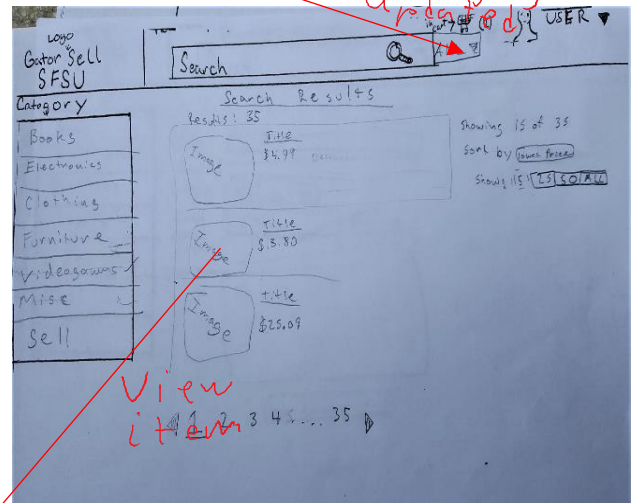 updated
Logo
Gator Sell
SFSU
USER
Search
Category
Books
Electronics
Clothing
Furniture
Videogames
Misc
Sell
Search Results
Results: 35
Image
Title
$4.99
Image
Title
$3.80
Image
Title
$25.09
Showing 15 of 35
Sort by
Show: 15 25 50 ALL
View
item
1 2 3 4 ... 35